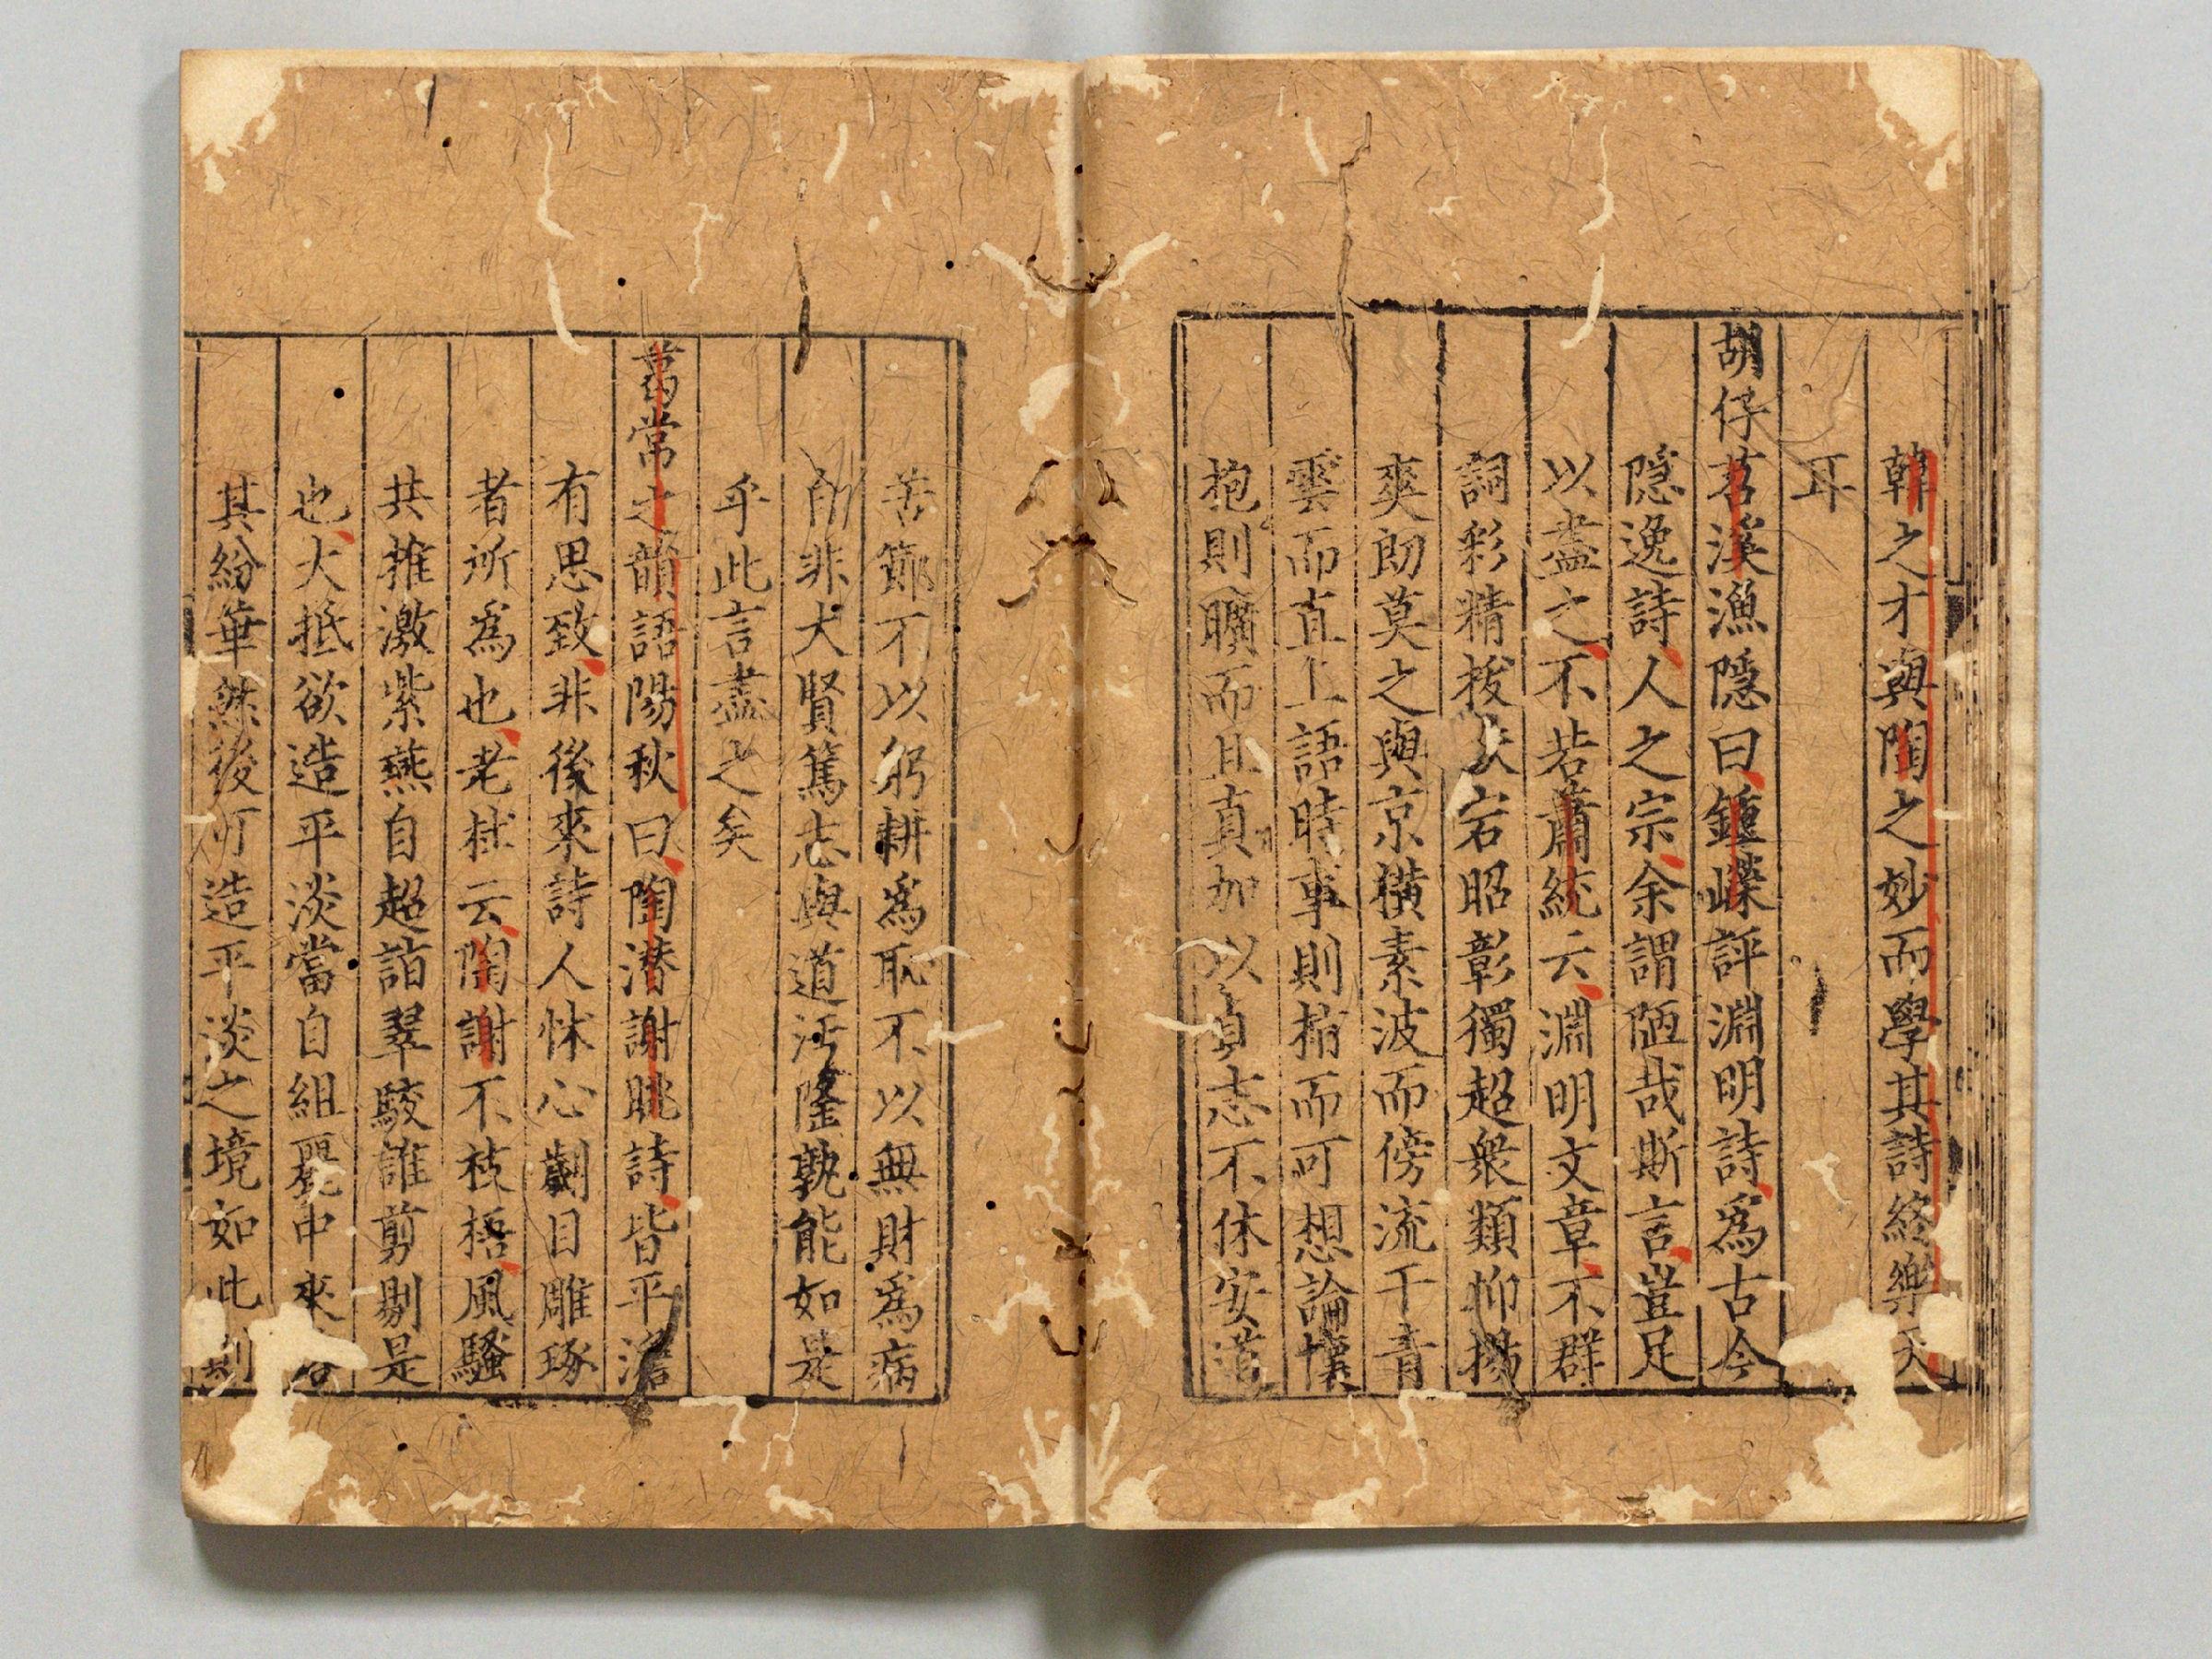 韓之才與陶之妙而學其詩終樂天
耳
胡仔苕溪漁隱曰鍾嶸評淵明詩爲古今
隱逸詩人之宗余謂陋哉斯言豈足
以盡之不若蕭統云淵明文章不群
詞彩精拔跌宕昭彰獨超衆類抑揚
爽朗莫之與京橫素波而傍流干青
雲而直上語時事則指而可想論懷
抱則曠而且真加以貞志不休安道
苦節不以躬耕爲恥不以無財爲病
自非大賢篤志與道汙隆孰能如是
乎此言盡之矣
葛常之韻語陽秋曰陶潜謝朓詩皆平澹
有思致非後來詩人怵心劌目雕琢
者所爲也老杜云陶謝不枝梧風騷
共推激紫燕自超詣翠駮誰剪剔是
也大抵欲造平淡當自組麗中來
其紛華然後可造平淡之境如此則